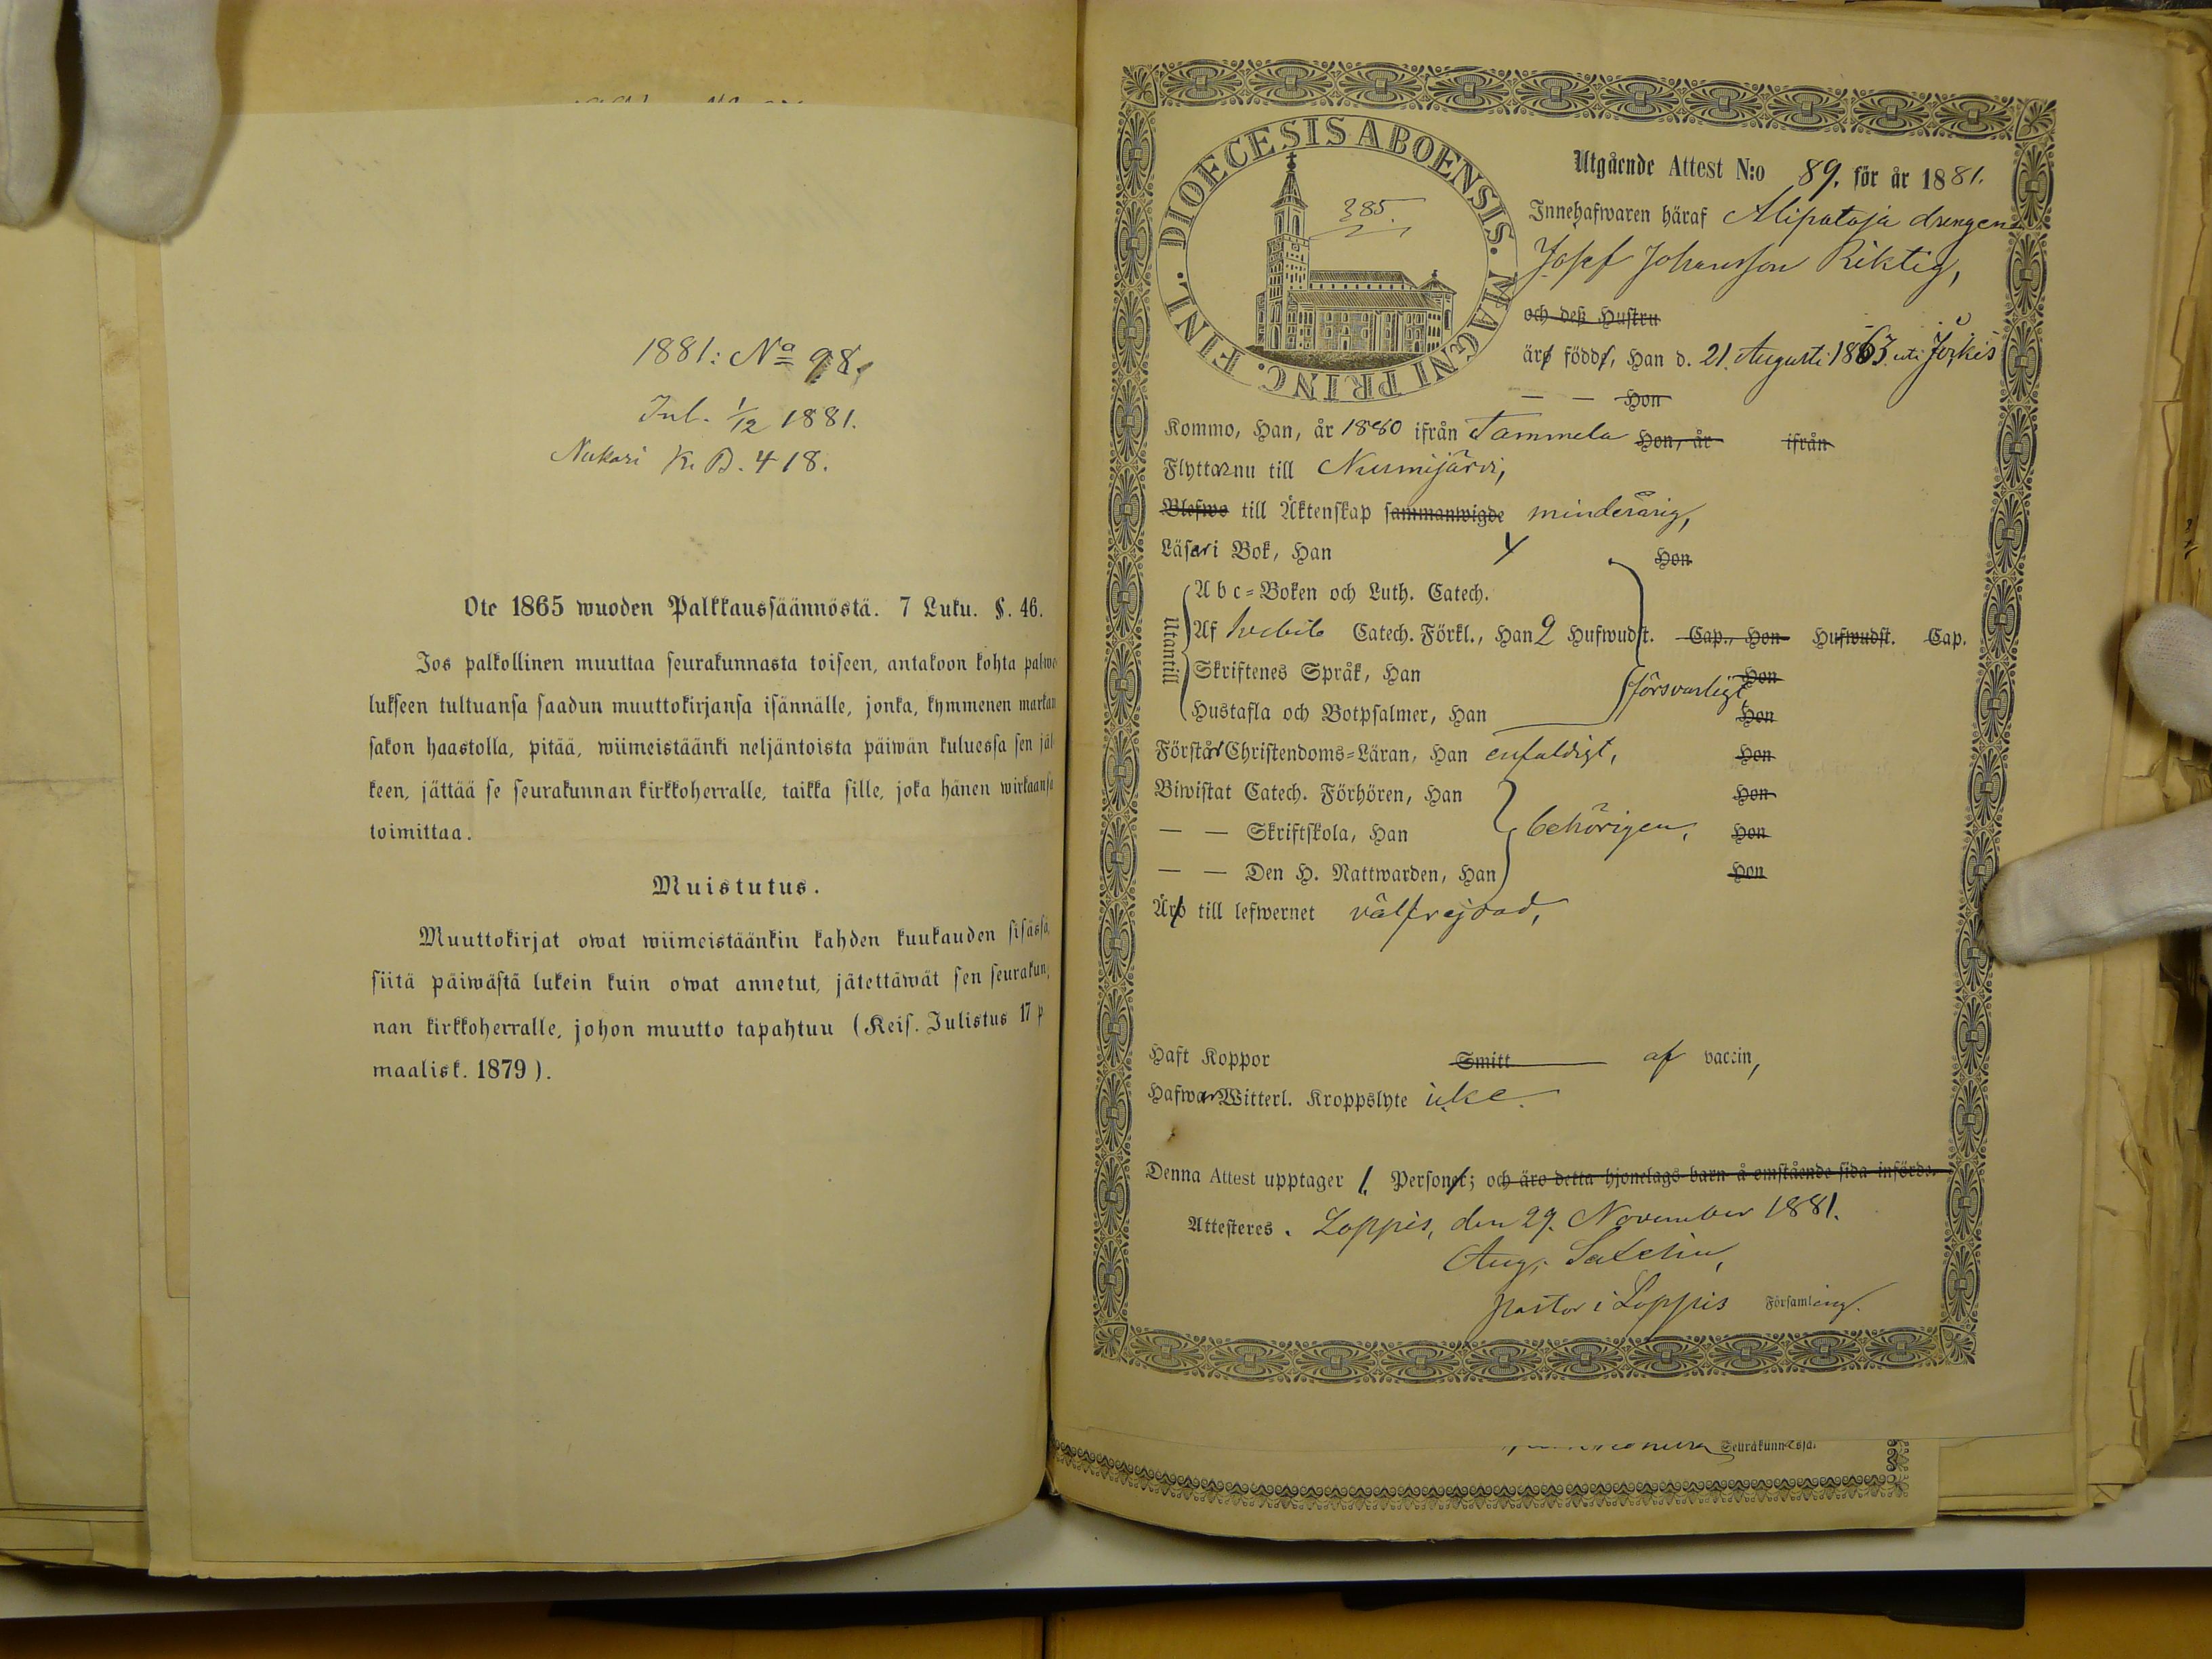 1881: Nº 98.
Inl. 1/12 1881.
Nukari K. B. 418.
Ote 1865 wuoden Palkkaussäännöstä. 7 Luku. §. 46.
Jos palkollinen muuttaa seurakunnasta toiseen, antakoon kohta palwe
lukseen tultuansa saadun muuttokirjansa isännälle, jonka, kymmenen markan
sakon haastolla, pitää, wiimeistäänki neljäntoista päiwän kuluessa sen jäl
keen, jättää se seurakunnan kirkkoherralle, taikka sille, joka hänen wirkaansa
toimittaa.
Muistutus.
Muuttokirjat owat wiimeistäänkin kahden kuukauden sisässä,
siitä päiwästä lukein kuin owat annetut, jätettäwät sen seurakun,
nan kirkkoherralle, johon muutto tapahtuu (Keis. Julistus 17 p
maalisk. 1879).
DIOECESIS ABOENSIS. MAGNI PRINC. FINL.
385.
Utgående Attest N:o 89. för år 1881.
Innehafwaren häraf Alipataja drengen
Josef Johansson Riktig,
och deß Hustru
äro född, Han d. 21. Augusti 1863. uti Jockis
— — Hon
Kommo, Han, år 1880 ifrån Tammela Hon, år ifrån
Flyttar nu till Nurmijärvi,
Blefwo till Äktenskap sammanwigde minderårig,
Läser i Bok, Han Hon
Utantill
A b c-Boken och Luth. Catech.
Af Catech. Förkl., Han 2 Hufwudst. Cap., Hon Hufwudst. Cap.
Skriftenes Språk, Han försvarligt Hon
Hustafla och Botpsalmer, Han Hon
Förstår Christendoms-Läran, Han enfaldigt, Hon
Biwistat Catech. Förhören, Han Hon
— — Skriftskola, Han behörigen, Hon
— — Den H. Nattwarden, Han Hon
Äro till lefwernet välfrejdad,
Haft Koppor Smitt af vaccin,
Hafwer Witterl. Kroppslyte icke.
Denna Attest upptager 1. Person; och äro detta hjonelags barn å omstående sida införde.
Attesteres. Loppis, den 29. November 1881.
Aug.
pastor i Loppis Församling.
Seurakunnassa.